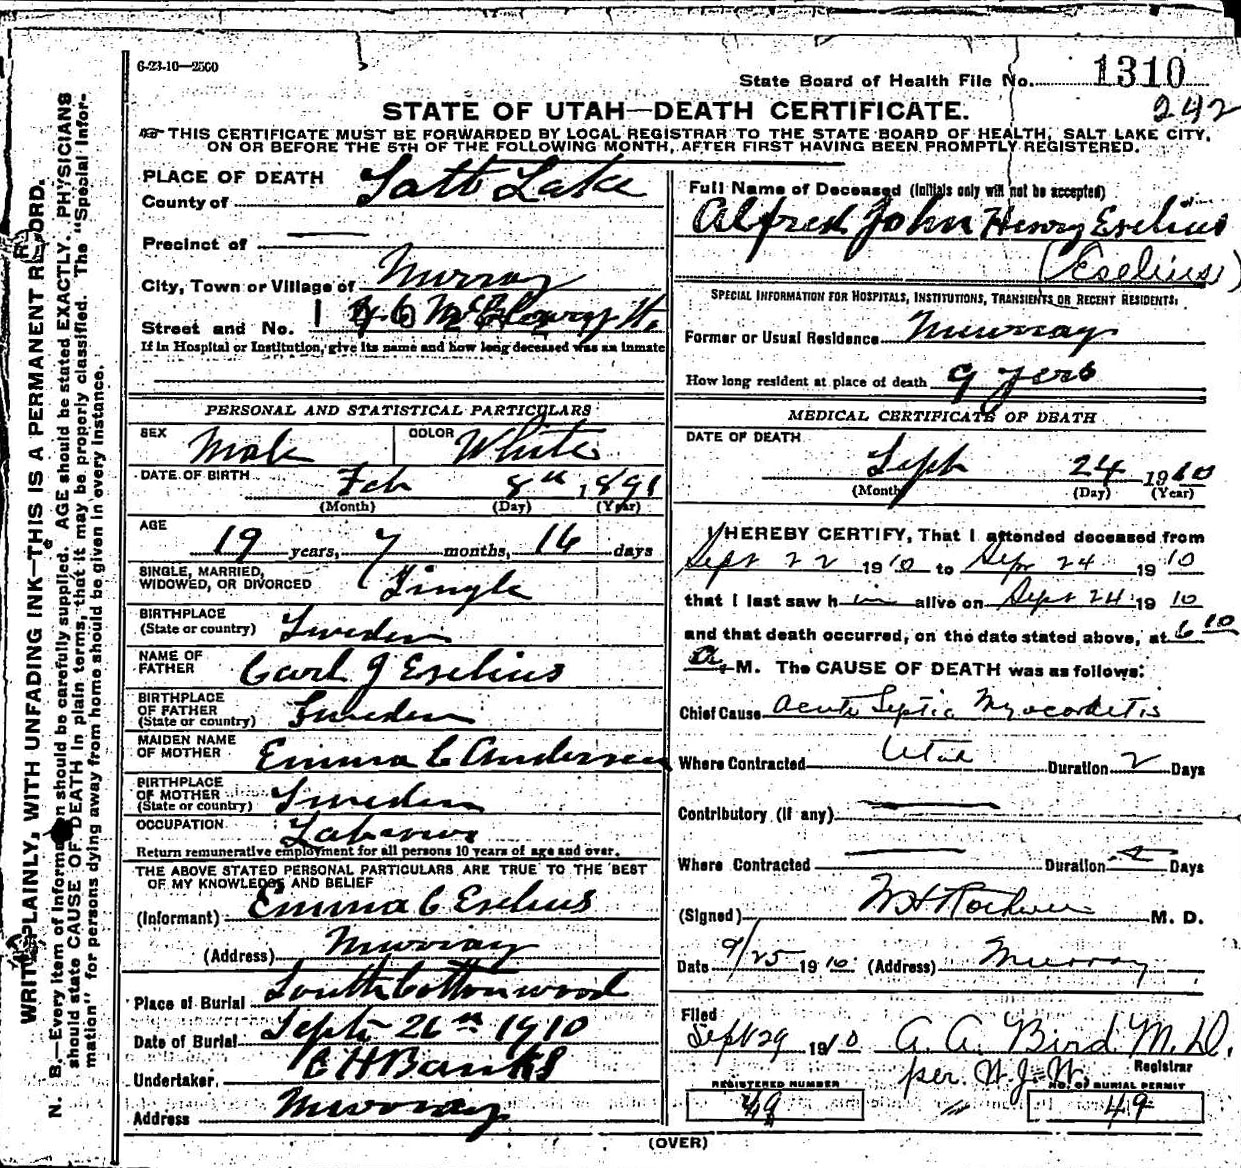 6-23-10—2500
State Board of Health File No. 1310
242
STATE OF UTAH—DEATH CERTIFICATE.
THIS CERTIFICATE MUST BE FORWARDED BY LOCAL REGISTRAR TO THE STATE BOARD OF HEALTH, SALT LAKE CITY,
ON OR BEFORE THE 5TH OF THE FOLLOWING MONTH, AFTER FIRST HAVING BEEN PROMPTLY REGISTERED.
WRITE PLAINLY, WITH UNFADING INK—THIS IS A PERMANENT RECORD.
N. B.—Every item of information should be carefully supplied. AGE should be stated EXACTLY. PHYSICIANS
should state CAUSE OF DEATH in plain terms, that it may be properly classified. The "Special Infor-
mation" for persons dying away from home should be given in every instance.
PLACE OF DEATH
County of Salt Lake
Precinct of —
City, Town or Village of Murray
Street and No.
If in Hospital or Institution, give its name and how long deceased was an inmate
PERSONAL AND STATISTICAL PARTICULARS
SEX Male COLOR White
DATE OF BIRTH Feb 8th, 1891
(Month) (Day) (Year)
AGE 19 years, 7 months, 16 days
SINGLE, MARRIED,
WIDOWED, OR DIVORCED Single
BIRTHPLACE
(State or country) Sweden
NAME OF
FATHER Carl J Eselius
BIRTHPLACE
OF FATHER
(State or country) Sweden
MAIDEN NAME
OF MOTHER Emma C Andersen
BIRTHPLACE
OF MOTHER
(State or country) Sweden
OCCUPATION Laborer
Return remunerative employment for all persons 10 years of age and over.
THE ABOVE STATED PERSONAL PARTICULARS ARE TRUE TO THE BEST
OF MY KNOWLEDGE AND BELIEF
(Informant) Emma C Eselius
(Address) Murray
Place of Burial South Cottonwood
Date of Burial Sept 26th 1910
Undertaker C H Banks
Address Murray
Full Name of Deceased (Initials only will not be accepted)
Alfred John Henry Eselius
(Eselius)
SPECIAL INFORMATION FOR HOSPITALS, INSTITUTIONS, TRANSIENTS OR RECENT RESIDENTS:
Former or Usual Residence Murray
How long resident at place of death 9 yers
MEDICAL CERTIFICATE OF DEATH
DATE OF DEATH
Sept 24 1910
(Month) (Day) (Year)
I HEREBY CERTIFY, That I attended deceased from
Sept 22 1910 to Sep 24 1910
that I last saw him alive on Sept 24 1910
and that death occurred, on the date stated above, at 6 10
A. M. The CAUSE OF DEATH was as follows:
Chief Cause Acute Septic Myocarditis
Where Contracted Utah Duration 2 Days
Contributory (if any) —
Where Contracted — Duration — Days
(Signed) M. D.
Date 9/25 1910 (Address) Murray
Filed
Sept 29 1910 A. A. Bird M.D.
Registrar
per. W. J. W.
REGISTERED NUMBER
49
No. of BURIAL PERMIT
49
(OVER)